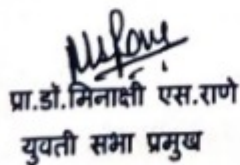 प्रा.डॉ.मिनाक्षी एस.राणे
युवती सभा प्रमुख